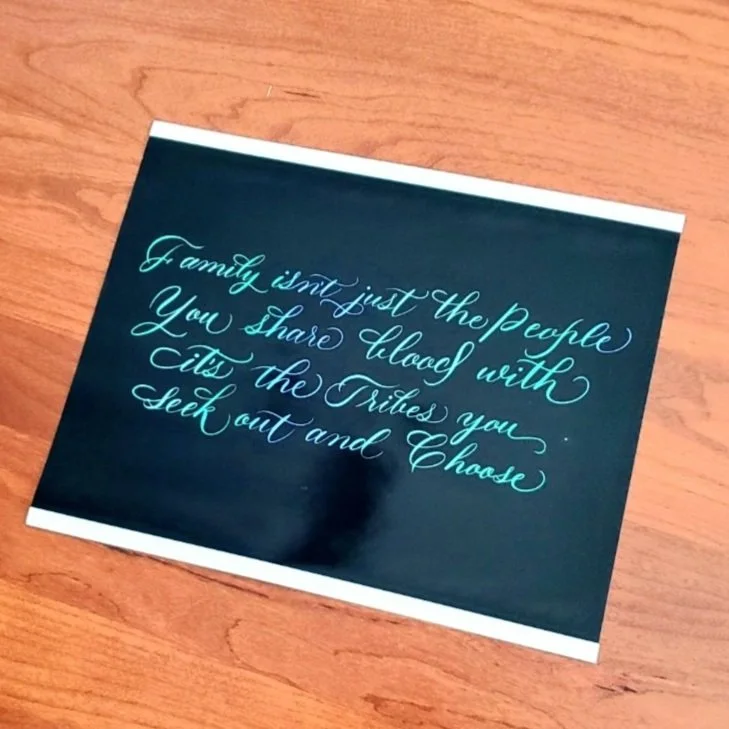 Family isn't just the People
You share blood with
it's the Tribes you
seek out and Choose